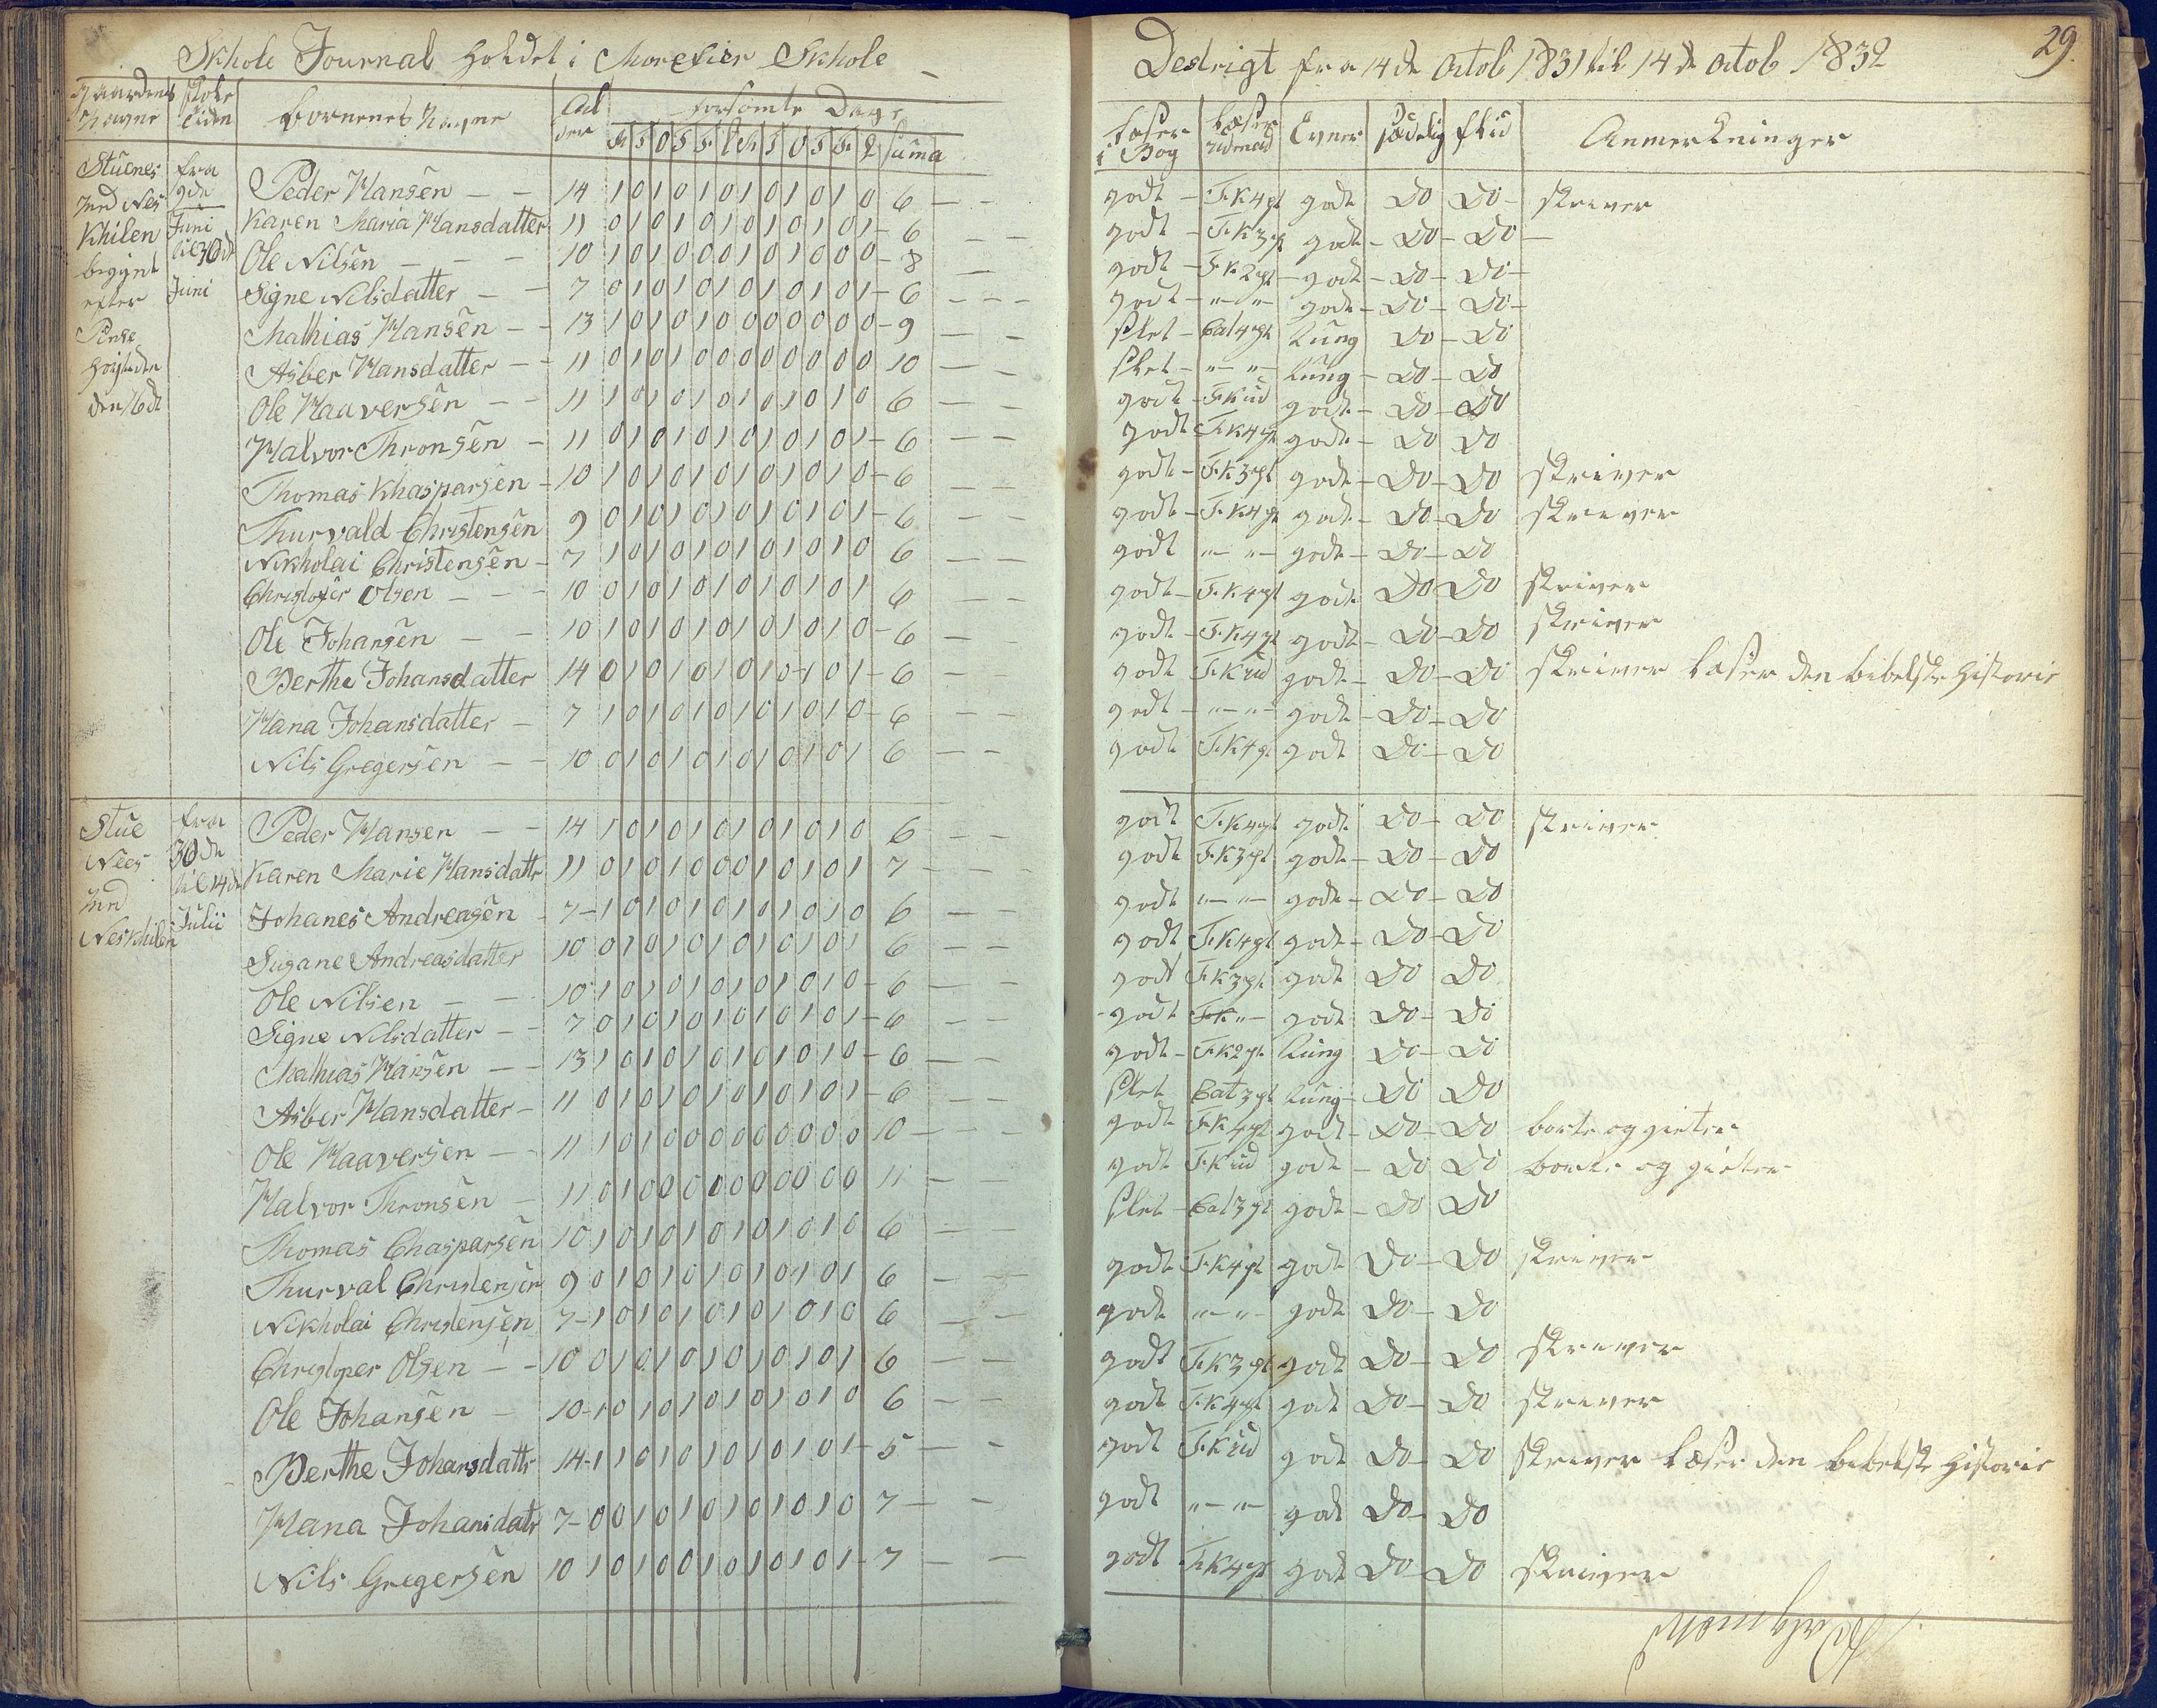 Skhole Journal holdet i Morekier Skhole
Destrigt fra 14de Octob 1831 til 14de Octob 1832
29.
gaardens Navne
skole tiden
børnenes Navne
Alder
forsømte Dage
M T O T F L M T O T F L suma
læser i Bog
læser udenad
Evner
sædelig
flid
Anmerkninger
Stuenes
Ind Nes
Khilen
begynt
efter
Pinse
høitiden
den 16de
fra
9de
Juni
til 30de
Juni
Peder Hansen 14 1 0 1 0 1 0 1 0 1 0 1 0 6 godt F.K 4 pt godt Do Do skriver
Karen Maria Hansdatter 11 0 1 0 1 0 1 0 1 0 1 0 1 6 godt F.K 3 pt godt Do Do
Ole Nilsen 10 1 0 1 0 0 0 1 0 1 0 0 0 8 godt F.K 2 pt godt Do Do
Signe Nilsdatter 7 0 1 0 1 0 1 0 1 0 1 0 1 6 godt " " godt Do Do
Mathias Hansen 13 1 0 1 0 1 0 0 0 0 0 0 0 9 slet Cat 4 pt tung Do Do
Asber Hansdatter 11 0 1 0 1 0 0 0 0 0 0 0 0 10 slet " " tung Do Do
Ole Haaversen 11 1 0 1 0 1 0 1 0 1 0 1 0 6 godt F.K ud godt Do Do
Halvor Thronsen 11 0 1 0 1 0 1 0 1 0 1 0 1 6 godt F.K 4 pt godt Do Do
Thomas Khasparsen 10 1 0 1 0 1 0 1 0 1 0 1 0 6 godt F.K 3 pt godt Do Do skriver
Thurvald Christensen 9 0 1 0 1 0 1 0 1 0 1 0 1 6 godt F.K 4 pt godt Do Do skriver
Nikholai Christensen 7 1 0 1 0 1 0 1 0 1 0 1 0 6 godt " " godt Do Do
Christofer Olsen 10 0 1 0 1 0 1 0 1 0 1 0 1 6 godt F.K 4 pt godt Do Do skriver
Ole Johansen 10 1 0 1 0 1 0 1 0 1 0 1 0 6 godt F.K 4 pt godt Do Do skriver
Berthe Johansdatter 14 0 1 0 1 0 1 0 1 0 1 0 1 6 godt F.K ud godt Do Do skriver læser den bibelske Historie
Hana Johansdatter 7 1 0 1 0 1 0 1 0 1 0 1 0 6 godt " " godt Do Do
Nils Gregersen 10 0 1 0 1 0 1 0 1 0 1 0 1 6 godt F.K 4 pt godt Do Do
Stue
Nees
Ind
Neskhilen
fra
30de
til 14de
Julii
Peder Hansen 14 1 0 1 0 1 0 1 0 1 0 1 0 6 godt F.K 4 pt godt Do Do skriver
Karen Marie Hansdattr 11 0 1 0 1 0 0 0 1 0 1 0 1 7 godt F.K 3 pt godt Do Do
Johanes Andreasen 7 1 0 1 0 1 0 1 0 1 0 1 0 6 godt " " godt Do Do
Susane Andreasdatter 10 0 1 0 1 0 1 0 1 0 1 0 1 6 godt F.K 4 pt godt Do Do
Ole Nilsen 10 1 0 1 0 1 0 1 0 1 0 1 0 6 godt F.K 3 pt godt Do Do
Signe Nilsdatter 7 0 1 0 1 0 1 0 1 0 1 0 1 6 godt F.K " godt Do Do
Mathias Hansen 13 1 0 1 0 1 0 1 0 1 0 1 0 6 godt F.K 2 pt tung Do Do
Asber Hansdatter 11 0 1 0 1 0 1 0 1 0 1 0 1 6 slet Cat 3 pt tung Do Do
Ole Haaversen 11 1 0 1 0 0 0 0 0 0 0 0 0 10 godt F.K 4 pt godt Do Do borte og gieter
Halvor Thronsen 11 0 1 0 0 0 0 0 0 0 0 0 0 11 godt F.K ud godt Do Do borte og gieter
Thomas Chasparsen 10 1 0 1 0 1 0 1 0 1 0 1 0 6 slet Cat 3 pt godt Do Do
Thurval Christensen 9 0 1 0 1 0 1 0 1 0 1 0 1 6 godt F.K 4 pt godt Do Do skriver
Nikholai Christensen 7 1 0 1 0 1 0 1 0 1 0 1 0 6 godt " " godt Do Do
Christoper Olsen 10 0 1 0 1 0 1 0 1 0 1 0 1 6 godt F.K 3 pt godt Do Do skriver
Ole Johansen 10 1 0 1 0 1 0 1 0 1 0 1 0 6 godt F.K 4 pt godt Do Do skriver
Berthe Johansdattr 14 1 1 0 1 0 1 0 1 0 1 0 1 5 godt F.K ud godt Do Do skriver læser den bibelske Historie
Hana Johansdatr 7 0 0 1 0 1 0 1 0 1 0 1 0 7 godt " " godt Do Do
Nils Gregersen 10 1 0 1 0 0 1 0 1 0 1 0 1 7 godt F.K 4 pt godt Do Do skriver